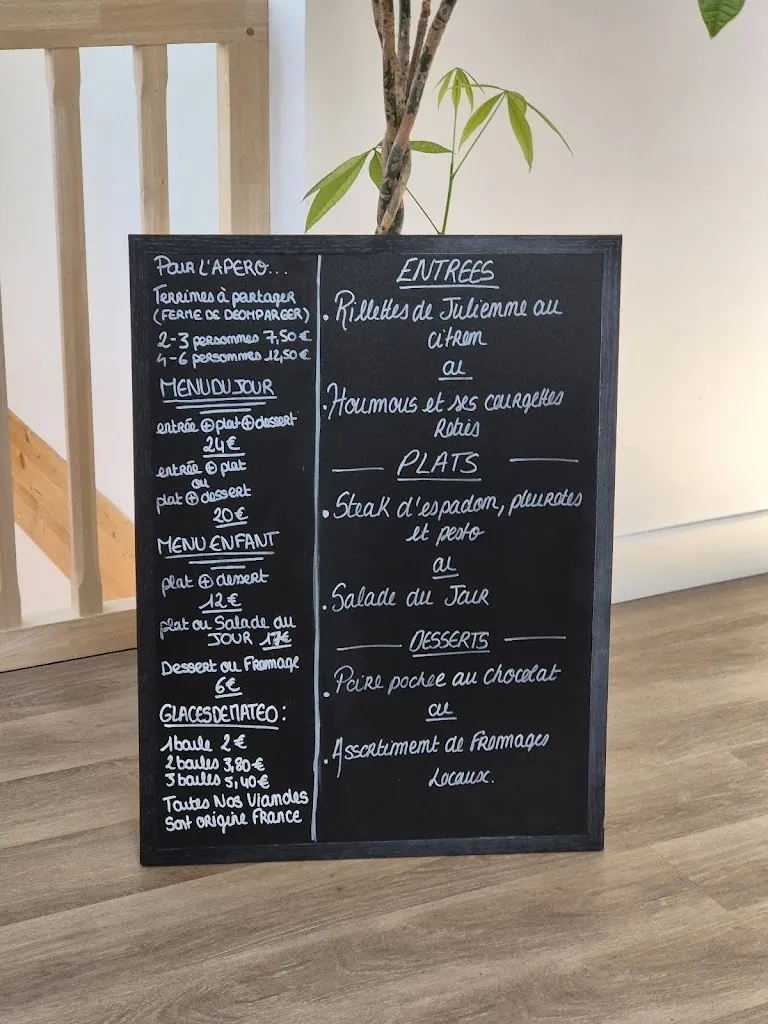 Pour L'APERO...
Terrines à partager
(FERME DE DEOMPARGER)
2-3 personnes 7,50€
4-6 personnes 12,50€
MENU DU JOUR
entrée ⊕ plat ⊕ dessert
24€
entrée ⊕ plat
ou
plat ⊕ dessert
20€
MENU ENFANT
plat ⊕ dessert
12€
plat ou Salade du
JOUR 17€
Dessert ou Fromage
6€
GLACES DE MATEO :
1 boule 2€
2 boules 3,80€
3 boules 5,40€
Toutes Nos Viandes
Sont origine France
ENTREES
. Rillettes de Julienne au
citron
ou
. Houmous et ses courgettes
Roties
PLATS
. Steak d'espadon, pleurotes
et pesto
ou
. Salade du Jour
DESSERTS
. Poire pochée au chocolat
ou
. Assortiment de Fromages
Locaux.